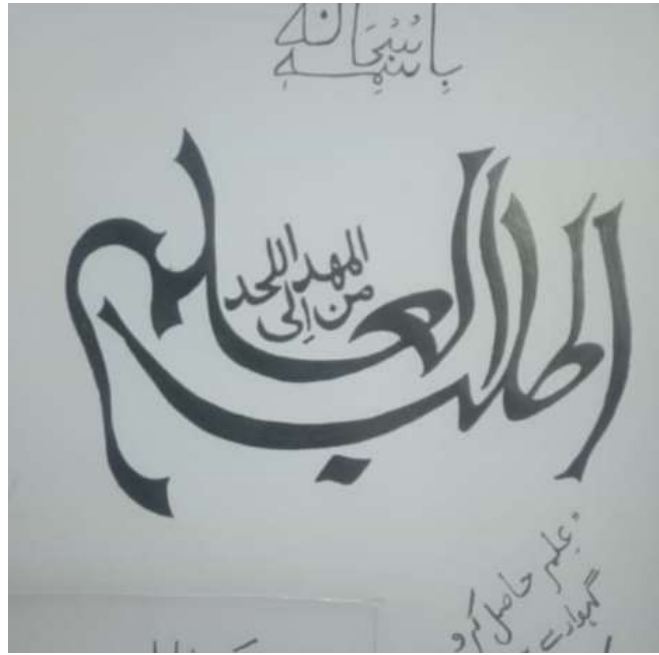 باسمہ سبحانہ
اطلب العلم
من المهد إلى اللحد
"علم حاصل کرو
گہوارے سے